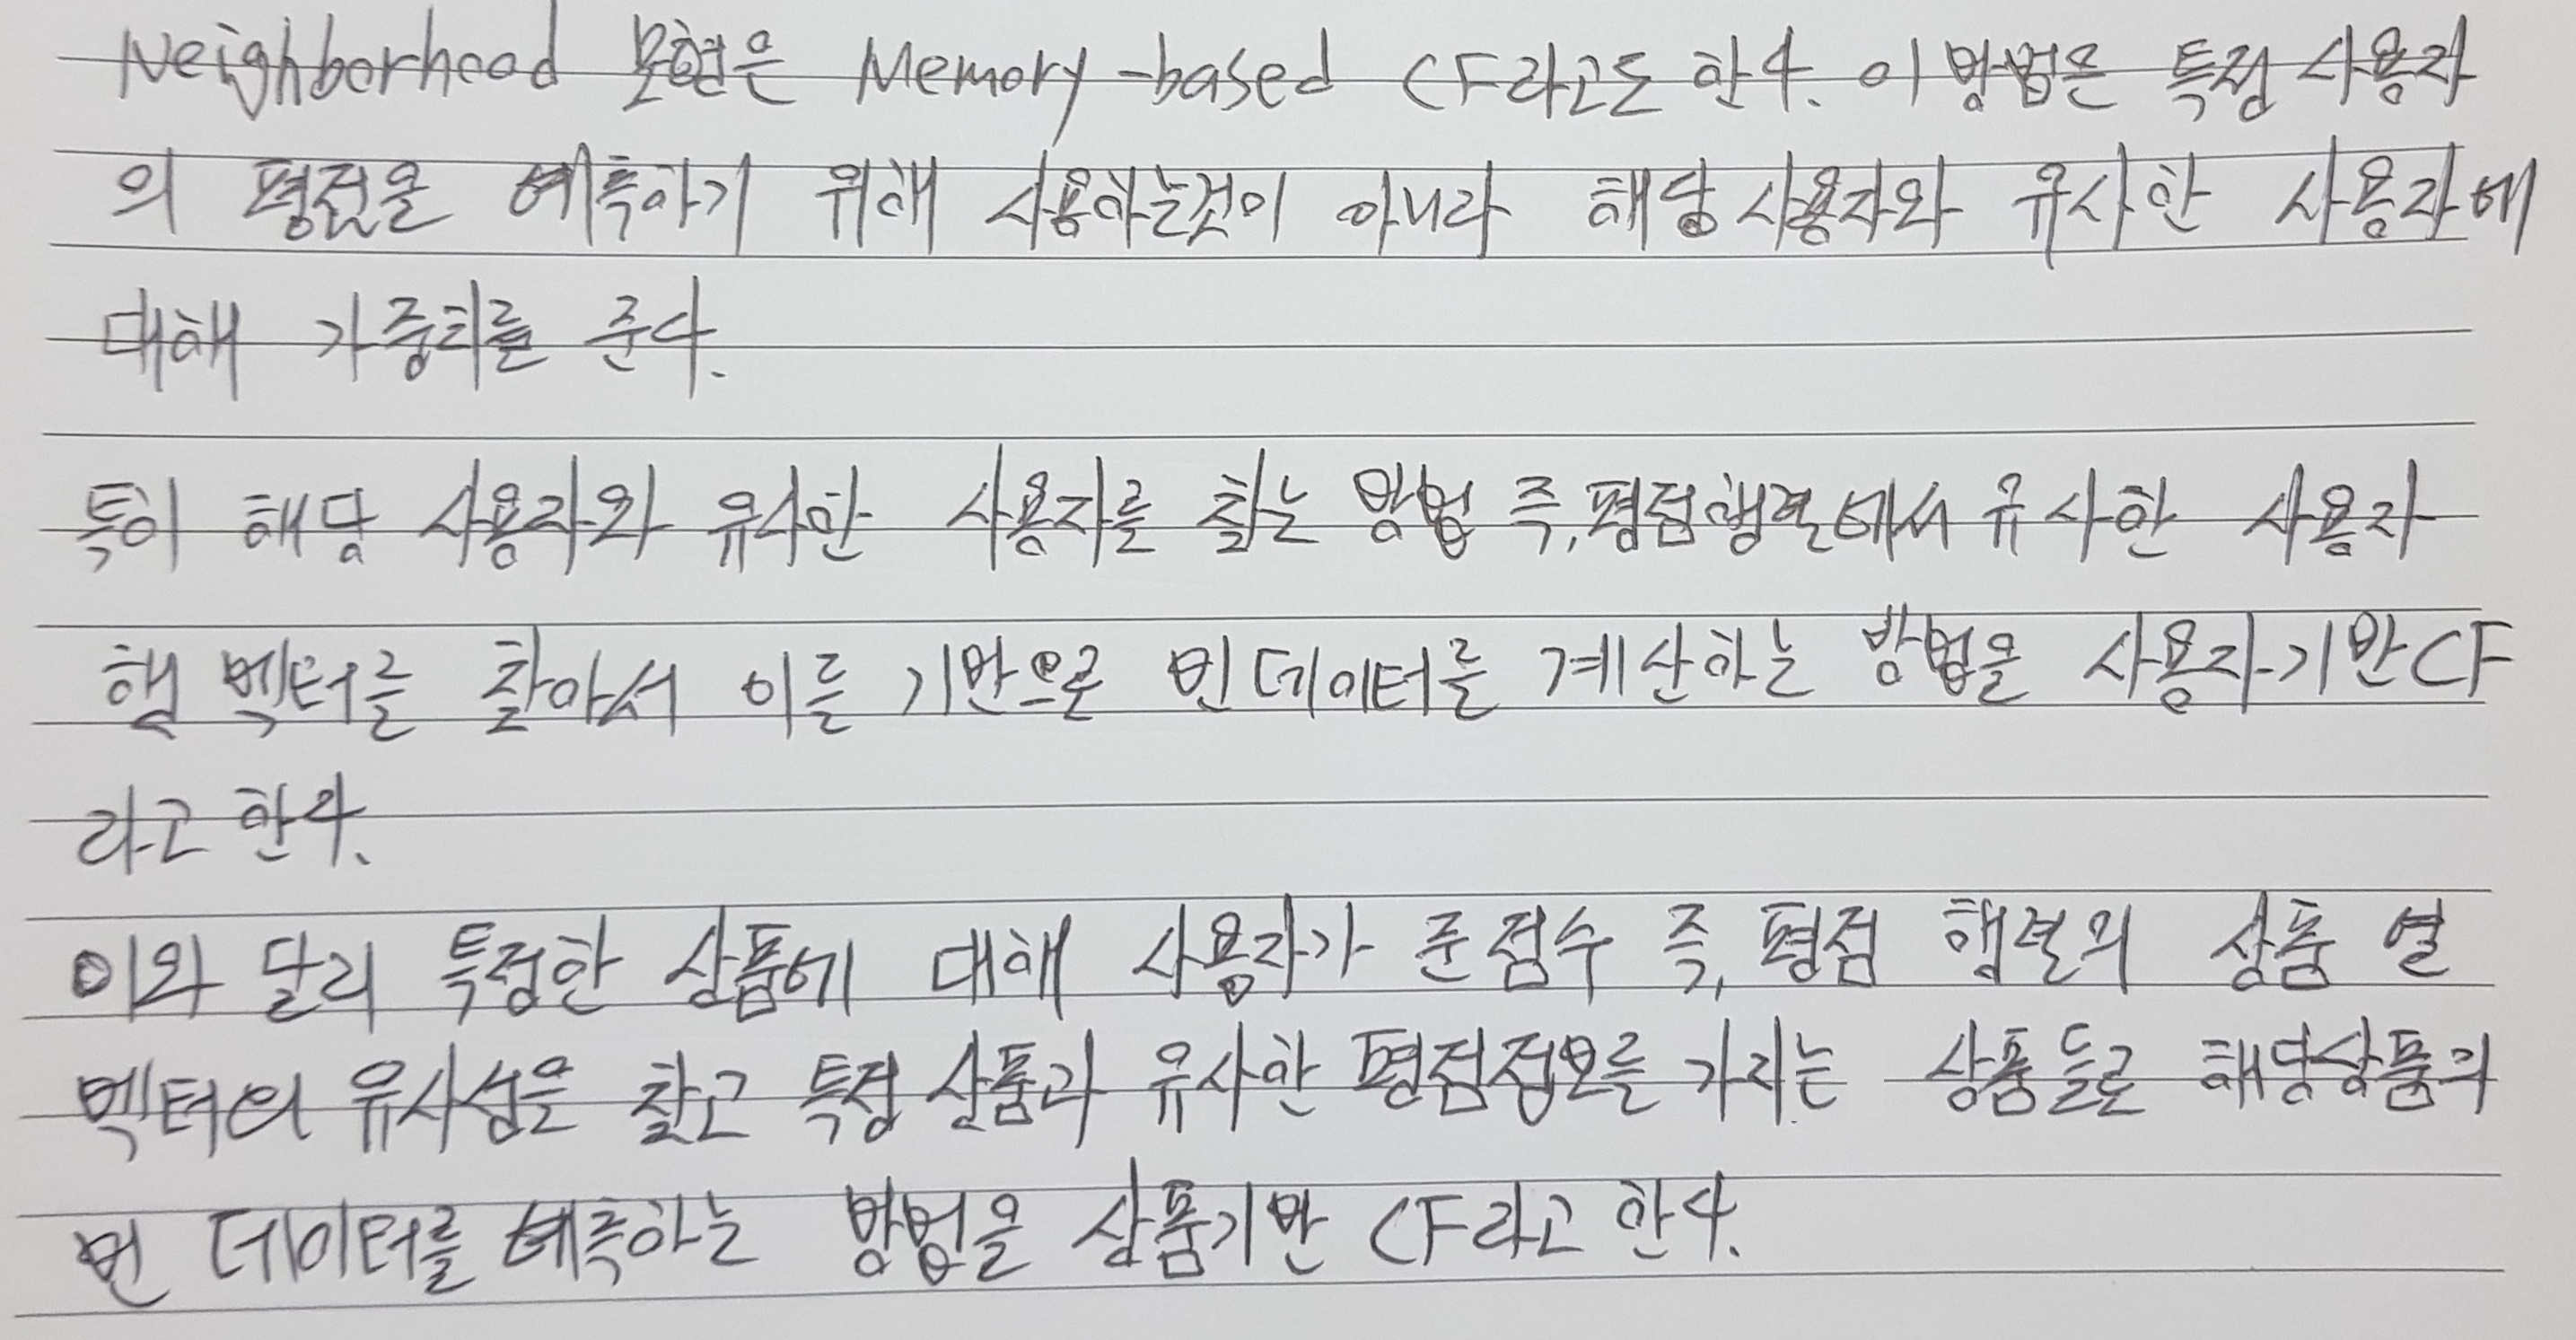 Neighborhood 모형은 Memory-based CF라고도 한다. 이 방법은 특정 사용자
의 평점을 예측하기 위해 사용하는것이 아니라 해당 사용자와 유사한 사용자에
대해 가중치를 준다.
특히 해당 사용자와 유사한 사용자를 찾는 방법 즉, 평점행렬에서 유사한 사용자
행 벡터를 찾아서 이를 기반으로 빈 데이터를 계산하는 방법을 사용자기반CF
라고 한다.
이와 달리 특정한 상품에 대해 사용자가 준 점수 즉, 평점 행렬의 상품 열
벡터의 유사성을 찾고 특정 상품과 유사한 평점정보를 가지는 상품들로 해당상품의
빈 데이터를 예측하는 방법을 상품기반 CF라고 한다.